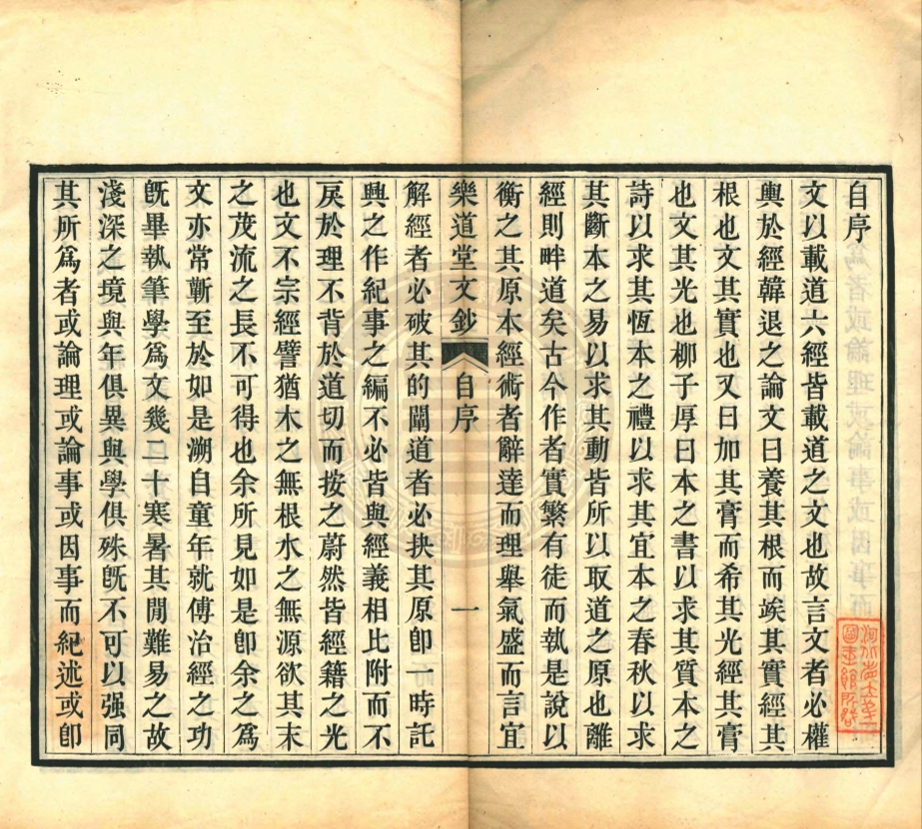 自序
文以載道六經皆載道之文也故言文者必權
輿於經韓退之論文曰養其根而竢其實經其
根也文其實也又曰加其膏而希其光經其膏
也文其光也柳子厚曰本之書以求其質本之
詩以求其恆本之禮以求其宜本之春秋以求
其斷本之易以求其動皆所以取道之原也離
經則畔道矣古今作者實繁有徒而執是說以
衡之其原本經術者辭達而理舉氣盛而言宜
樂道堂文鈔 自序 一
解經者必破其的闡道者必抉其原卽一時託
興之作紀事之編不必皆與經義相比附而不
戾於理不背於道切而按之蔚然皆經籍之光
也文不宗經譬猶木之無根水之無源欲其末
之茂流之長不可得也余所見如是卽余之爲
文亦常蘄至於如是溯自童年就傅治經之功
旣畢執筆學爲文幾二十寒暑其閒難易之故
淺深之境與年俱異與學俱殊旣不可以强同
其所爲者或論理或論事或因事而紀述或卽